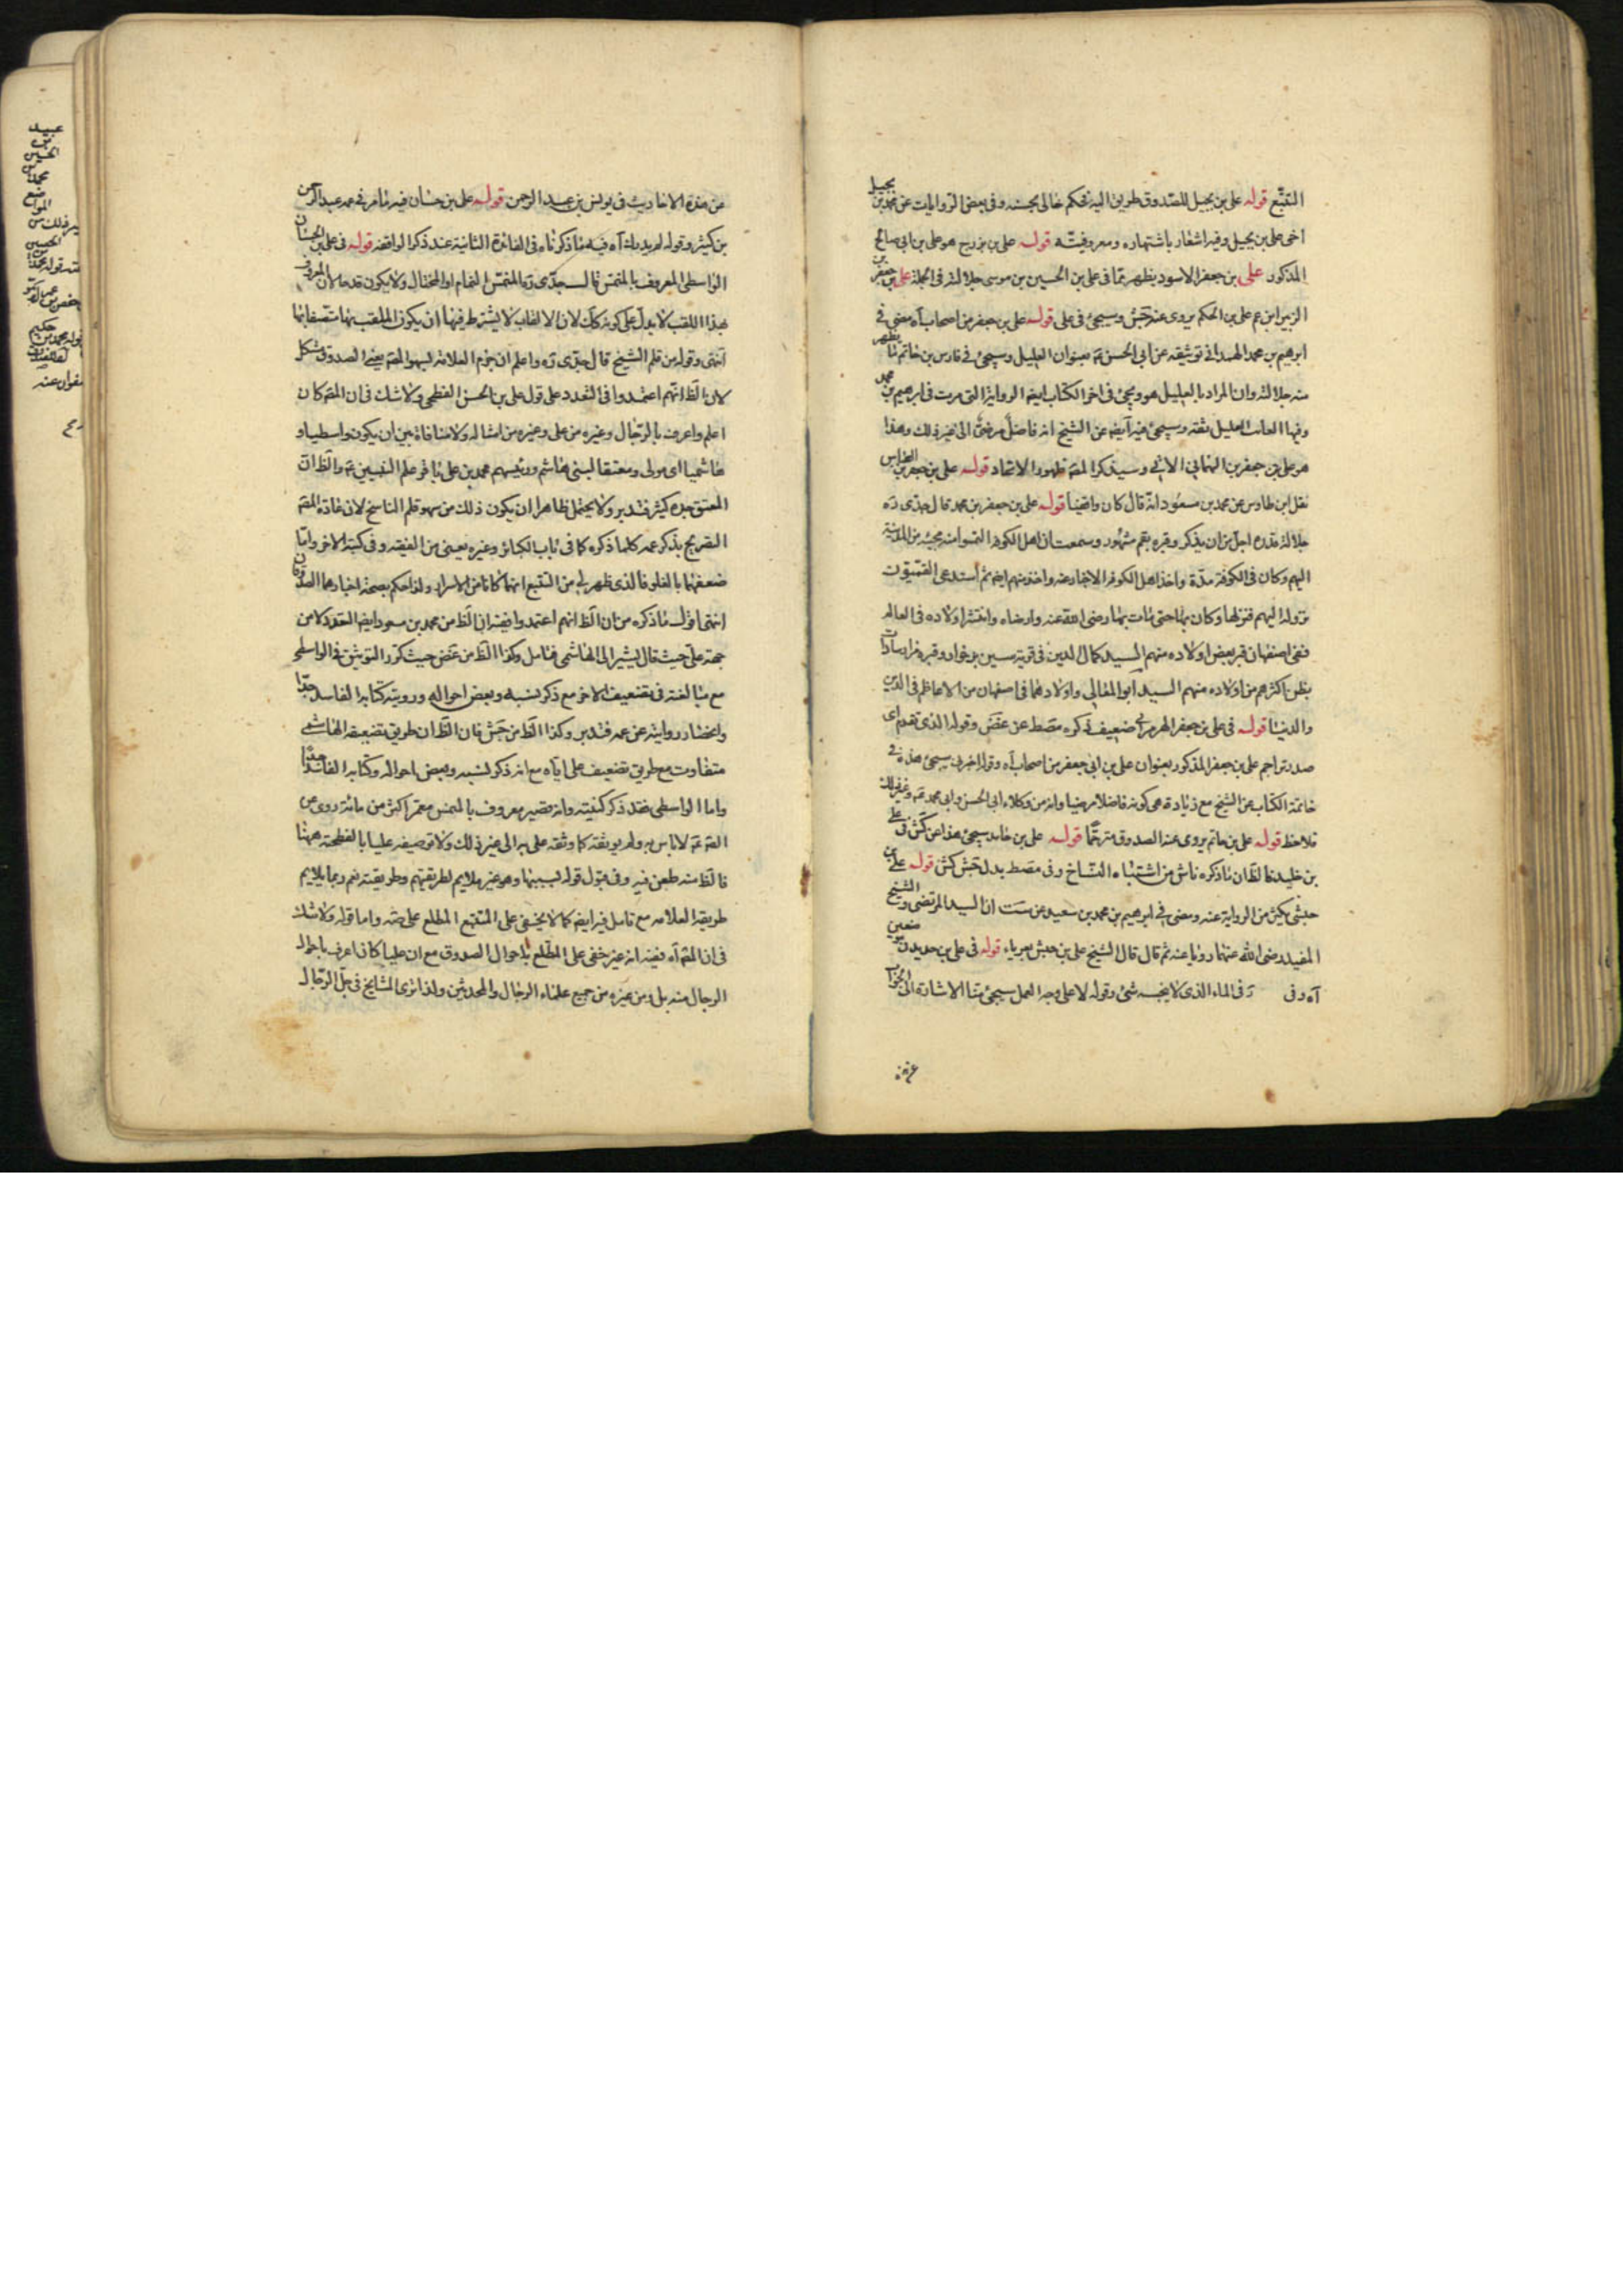 التتبع قوله على بن بجيل للصدوق طريق اليه نحكم خالى بحسنه وفى بعض الروايات عن محمد بن بجيل
اخى على بن بجيل وفيه اشعار باشتهاره ومعروفيته قوله على بن بزرج هو على بن ابى صالح
المذكور على بن جعفر الاسود يظهر مما فى على بن الحسين بن موسى جلالته فى الجملة على بن جعفر
ابن عم على بن الحكم يروى عنه جش وسيجئ فى على قوله على بن جعفر من اصحاب آه مضى فى
ابرهيم بن محمد الهمدانى توثيقه عن ابى الحسن ع بعنوان العليل وسيجئ فى فارس بن حاتم ما يظهر
منه جلالته وان المراد بالعليل هو ويجئ فى اخر الكتاب ايضا الرواية التى مرت فى ابرهيم بن محمد
وفيها العليل ثقة وسيجئ فيه ايضا عن الشيخ انه فاضل مرضى الى غير ذلك وهذا
هو على بن جعفر بن الهمانى الاتى وسيذكر المصه ظهور الاتحاد قوله على بن جعفر بن
نقل ابن طاوس عن محمد بن مسعود انه قال كان واقفيا قوله على بن جعفر بن محمد قال جدى ره
جلالة قدره اجل من ان يذكر وقبره بقم مشهور وسمعت ان اهل الكوفة التمسوا منه مجيئه من المدينة
اليهم وكان فى الكوفة مدة واخذ اهل الكوفة الاخبار عنه واخذ منهم ايضا ثم استدعى القميون
نزوله اليهم فنزلها وكان بها حتى مات بها رضى الله عنه وارضاه وانتشر اولاده فى العالم
ففى اصفهان قبر بعض اولاده منهم السيد كمال الدين فى قرية سين برخوار وقبره يزار
بل اكثرهم من اولاده منهم السيد ابو المعالى واولادهما فى اصفهان من الاعاظم فى الدين
والدنيا قوله فى على بن جعفر الهرمزانى ضعيف ذكره مصط عن غض وقوله الذى تقدم اى
صدر تراجم على بن جعفر المذكور بعنوان على بن ابى جعفر من اصحاب آه وقوله سيجئ هذه فى
خاتمة الكتاب عن الشيخ مع زيادة هى كونه فاضلا مرضيا وانه من وكلاء ابى الحسن وابى محمد ع وغير ذلك
فلاحظ قوله على بن حاتم يروى عنه الصدوق مترحما قوله على بن خالد سيجئ هذا عن كش فى على
بن خليد فالظ ان ما ذكره ناش من اشتباه النساخ وفى مصط بدل جش كش قوله على بن
حبشى يكثر من الرواية عنه ومضى فى ابرهيم بن محمد بن سعيد عن ست ان السيد المرتضى والشيخ
المفيد رضى الله عنهما رويا عنه ثم قال قال الشيخ على بن حبش بغير ياء قوله فى على بن حديد
آه وفى ر فى الماء الذى لا ينجسه شئ وقوله لا على وجه العمل سيجئ منا الاشارة الى الجواب
عن هذه
عن هذه الاحاديث فى يونس بن عبد الرحمن قوله على بن حسان فيه ما مر فى عمه عبد الرحمن
بن كثير وقوله لم يدرك آه فيه ما ذكرناه فى الفائدة الثانية عند ذكر الواقفة قوله فى على بن الحسان
الواسطى المعروف بالمنمس قال جدى ره المنمس النمام او المحتال ولا يكون قدحا لان المعروف
بهذا اللقب لا يدل على كونه كك لان الالقاب لا يشترط فيها ان يكون الملقب بها متصفا بها
انتهى وقوله من قلم الشيخ قال جدى ره واعلم ان جزم العلامة لسهو المصه يعنى الصدوق مشكل
لان الظ انهم اعتمدوا فى التعدد على قول على بن الحسن الفطحى ولا شك فى ان المصه كان
اعلم واعرف بالرجال وغيره من على وغيره من امثاله ولا منافاة بين ان يكون واسطيا و
هاشميا اى مولى ومعتقا لبنى هاشم ورئيسهم محمد بن على باقر علم النبيين ع والظ ان
المعتق جده كثير فتدبر ولا يحتمل ظاهرا ان يكون ذلك من سهو قلم الناسخ لان عادة المصه
التصريح بذكر عمه كلما ذكره كما فى باب الكبائر وغيره يعنى من الفقيه وفى كتبه الاخر واما
ضعفهما بالغلو فالذى ظهر لى من التتبع انهما كانا من الاسرار ولذا حكم بصحة اخبارهما الصدوقان
انتهى اقول ما ذكره من ان الظ انهم اعتمدوا فيه ان الظ من محمد بن مسعود ايضا التعدد لا من
جهة على حيث قال يشير الى الهاشمى فتامل وكذا الظ من غض حيث كرر التوثيق فى الواسطى
مع مبالغته فى تضعيف الاخر مع ذكر نسبه وبعض احواله ورؤيته كتابه الفاسد جدا
وانحصار روايته عن عمه فتدبر وكذا الظ من جش فان الظ ان طريق تضعيفه الهاشمى
متفاوت مع طريق تضعيف على اياه مع انه ذكر نسبه وبعض احواله وكتابه الفاسد جدا
واما الواسطى فقد ذكر كنيته وانه قصير معروف بالمنمس معمر اكثر من مائة روى عن
الصه ع لا باس به ولم يوثقه كما وثقه على الى غير ذلك ولا توصيفه عليا بالفطحية ههنا
فالظ منه طعن فيه وفى قبول قوله لسببها وهو غير ملايم لطريقتهم وطريقته نعم ربما يلايم
طريقة العلامه مع تامل فيه ايضا كما لا يخفى على المتتبع المطلع على صه واما قوله ولا شك
فى ان المصه آه ففيه انه غير خفى على المطلع باحوال الصدوق مع ان عليا كان اعرف باحوال
الرجال منه بل ومن غيره من جميع علماء الرجال والمحدثين ولذا نرى المشايخ فى جل الرجال
عبيد
بن
الحسين
محمد